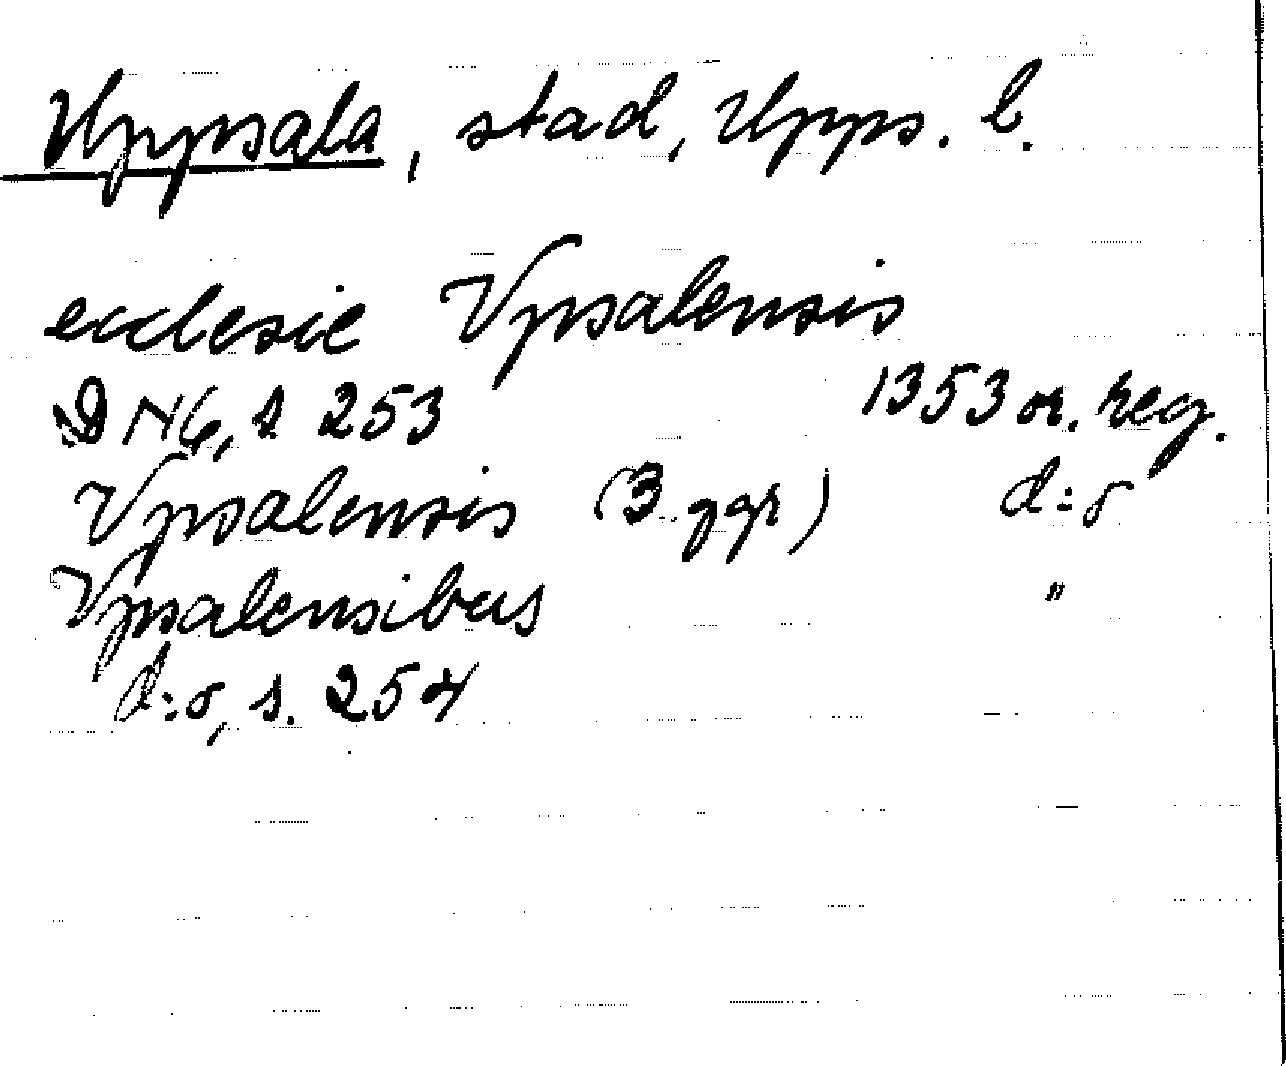 Uppsala, stad, Upps. l.
ecclesie Vpsalensis
DN 6, s 253 1353 or. reg.
Vpsalensis (3 ggr) d:o
Vpsalensibus "
d:o, s. 254